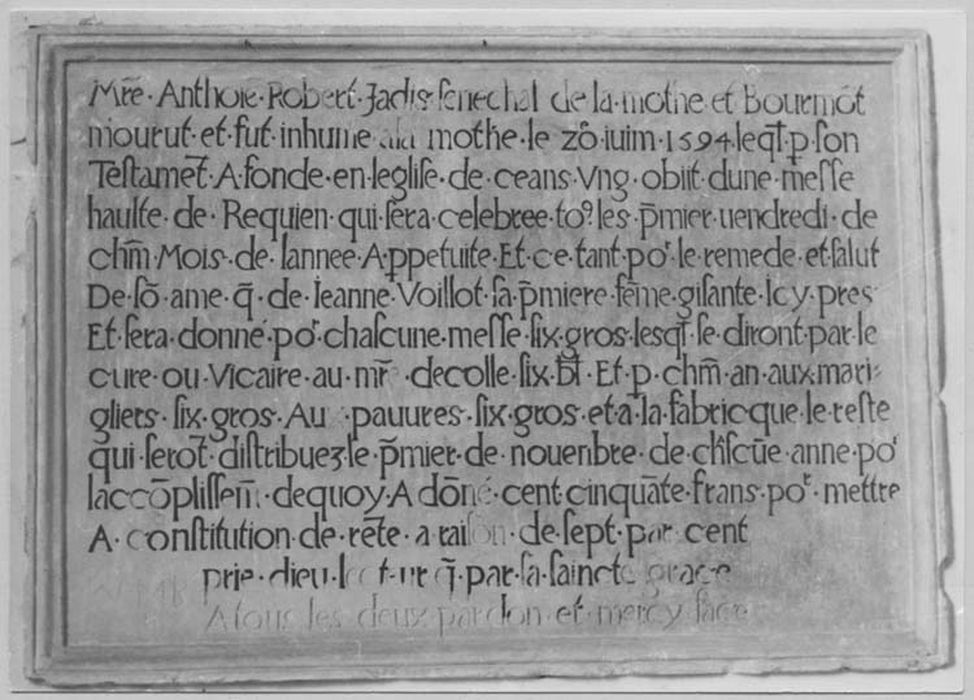 Mr̃e·Anthoie·Robert·Jadis·ſenechal de·la·mothe et Bourmōt
mourut·et·fut·inhume a la mothe·le zō·iuim·1594·leq̄l·p̱·ſon
Teſtamēt·A·fonde·en·legliſe·de·ceans·Vng·obiit·dune·meſſe
haulte·de·Requien·qui·ſera·celebree·to⁹·les·p̄mier·uendredi·de
chm̄·Mois·de·lannee·A·ꝑpetuite·Et·ce·tant·poʳ·le·remede·et·ſalut
De·ſō·ame·q̄·de·Ieanne·Voillot·ſa·p̄miere·fēme·giſante·Icy·pres
Et·ſera·donne·poʳ·chaſcune·meſſe·ſix·gros·leſq̄l·ſe·diront·par·le
cure·ou·Vicaire·au·mr̄·decolle·ſix·bl̄·Et·ꝑ·chm̄·an·aux·mari-
gliers·ſix·gros·Au·pauures·ſix·gros·et·a·la·fabricque·le·reſte
qui·ſerōt·diſtribuez·le·p̄mier·de·nouenbre·de·chſcūe·anne·poʳ
laccōpliſſem̄·dequoy·A dōné·cent·cinquāte·frans·poʳ·mettre
A·conſtitution·de·rēte·a·raiſon·de·ſept·par·cent
prie·dieu·lect·ur q̄·par·ſa·ſaincte grace
A tous les deux pardon·et·mercy·face